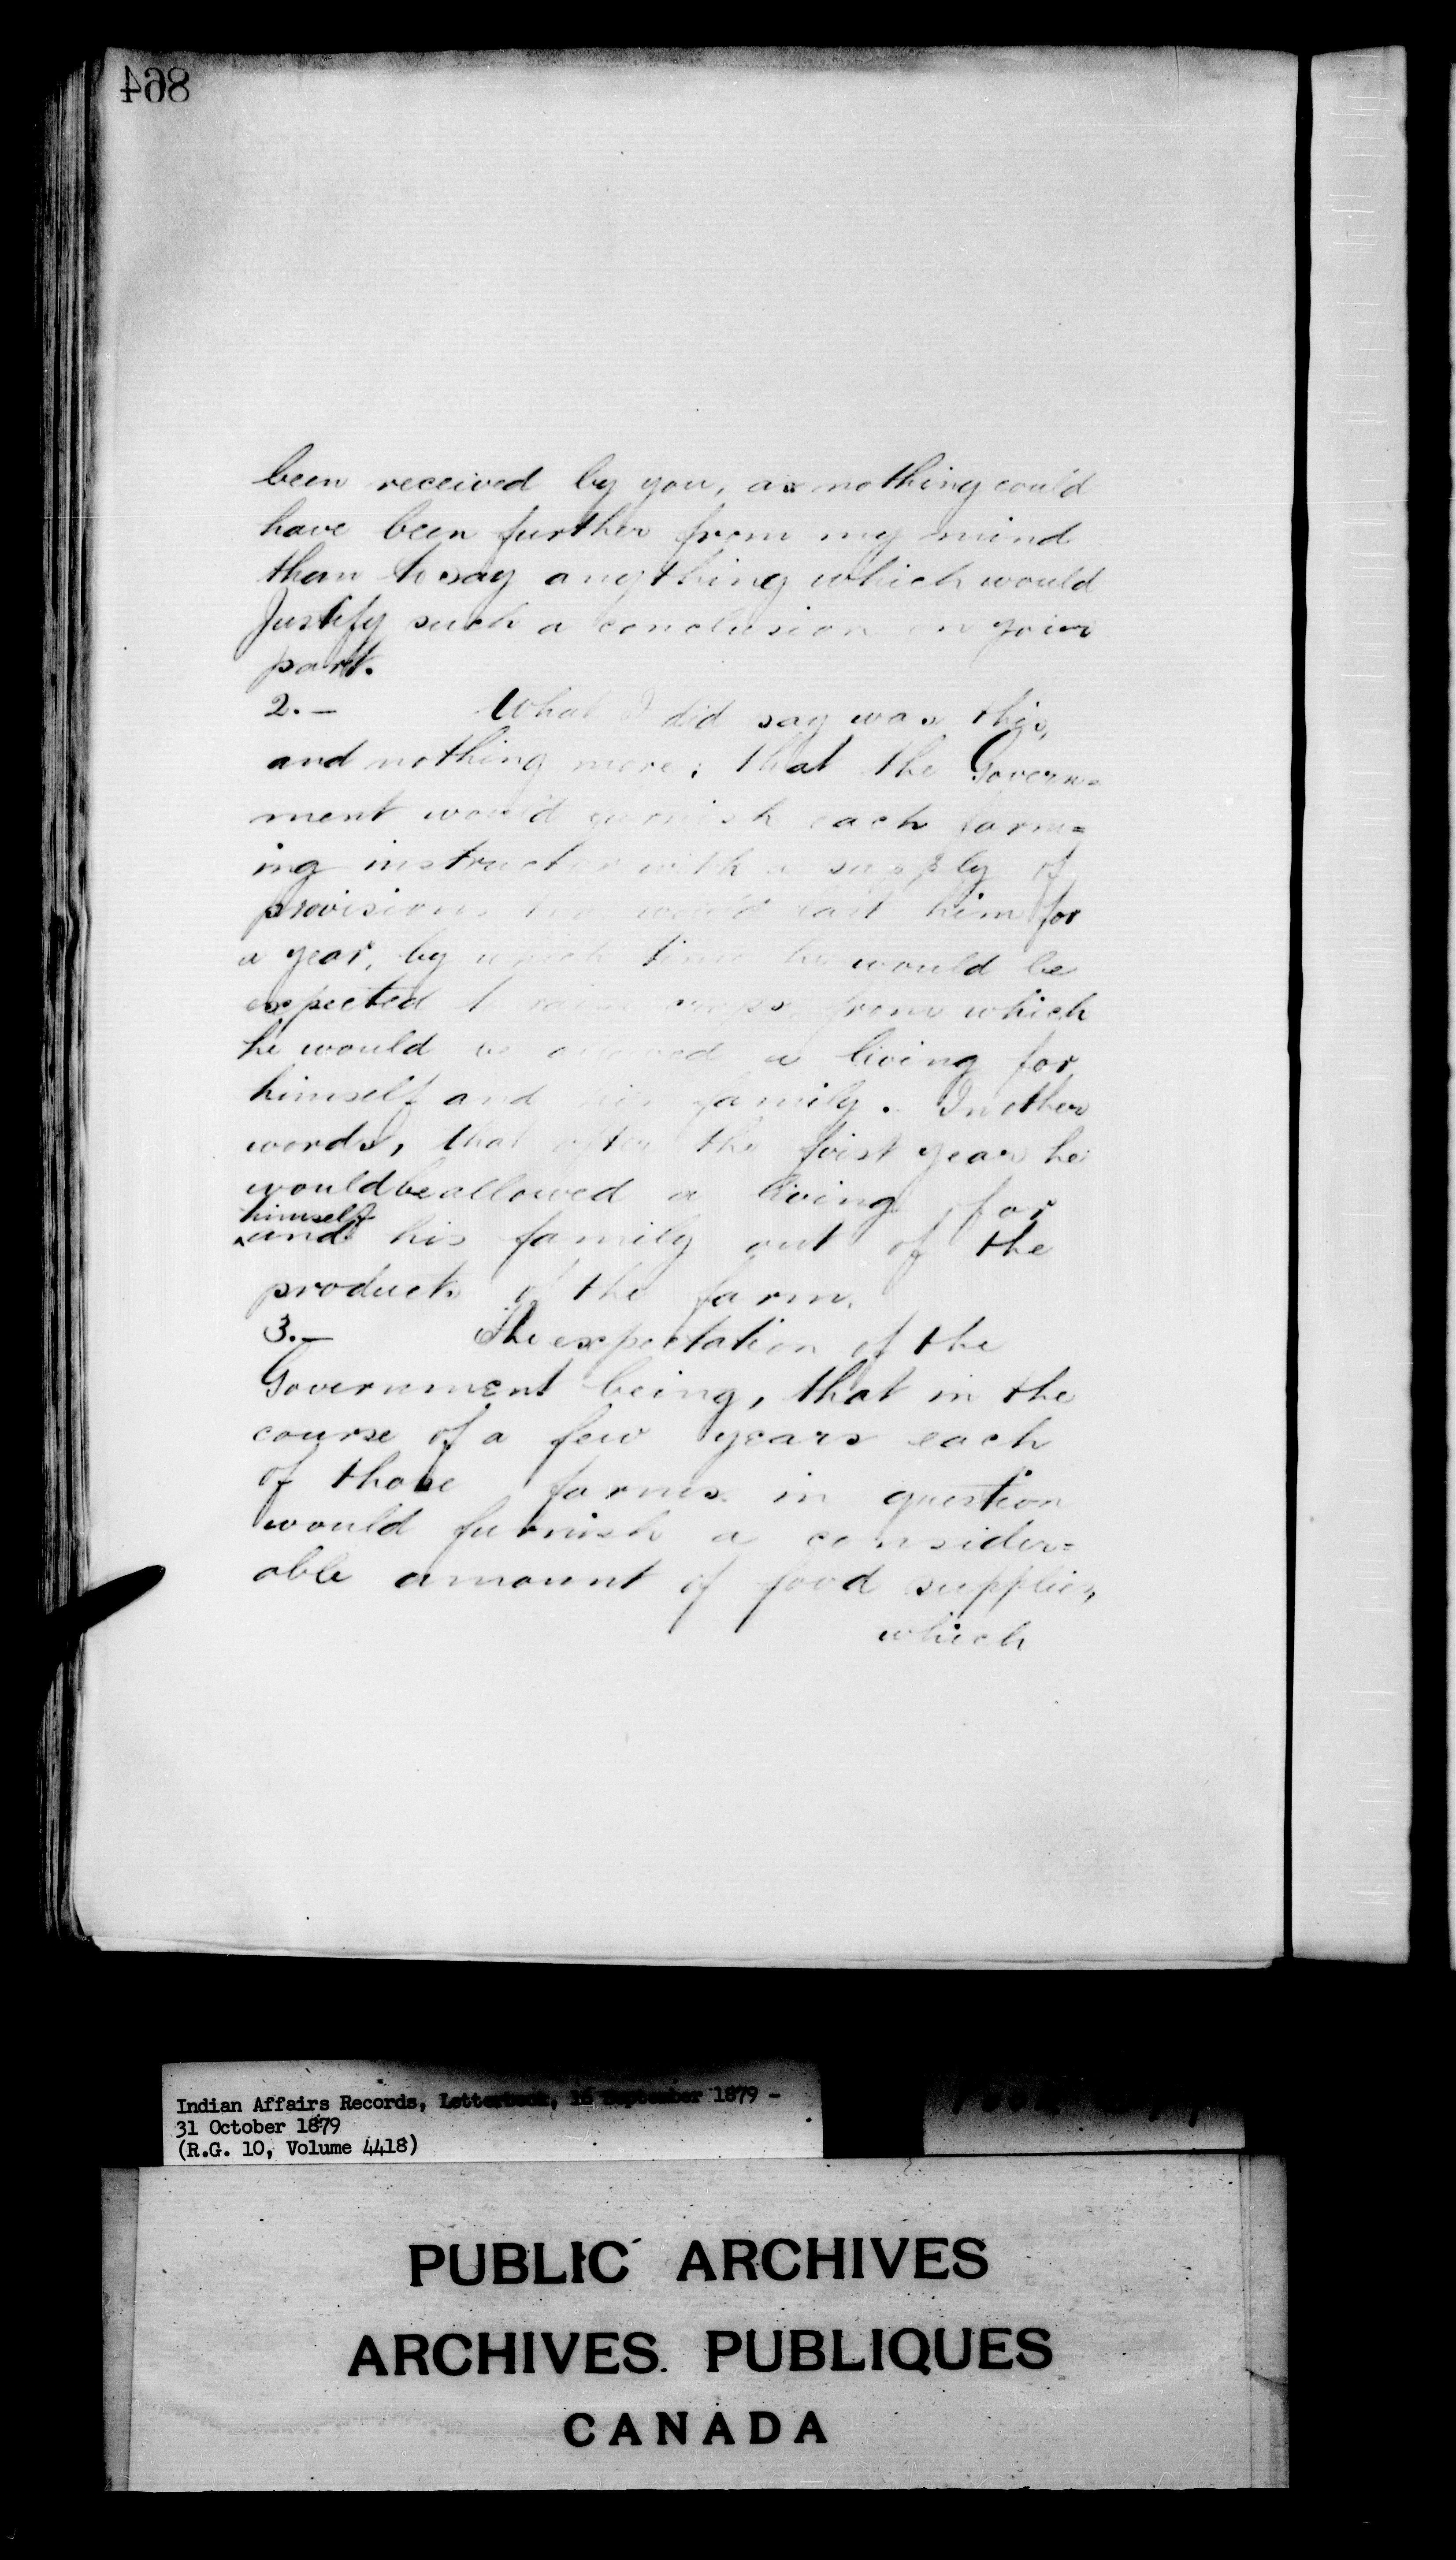 864
been received by you, as nothing could
have been further from my mind
than to say anything which would
Justify such a conclusion on your
part.
2.— What I did say was this,
and nothing more; that the Govern=
ment would furnish each farm=
ing instructor with a supply of
provisions that would last him for
a year, by which time he would be
expected to raise crops, from which
he would be allowed a living for
himself and his family. In other
words, that after the first year he
would be allowed a living for
himself
and his family out of the
products of the farm.
3.— The expectation of the
Government being, that in the
course of a few years each
of those farms in question
would furnish a consider=
able amount of food supplies,
which
Indian Affairs Records, Letterbook, 16 September 1879 -
31 October 1879
(R.G. 10, Volume 4418)
PUBLIC ARCHIVES
ARCHIVES PUBLIQUES
CANADA